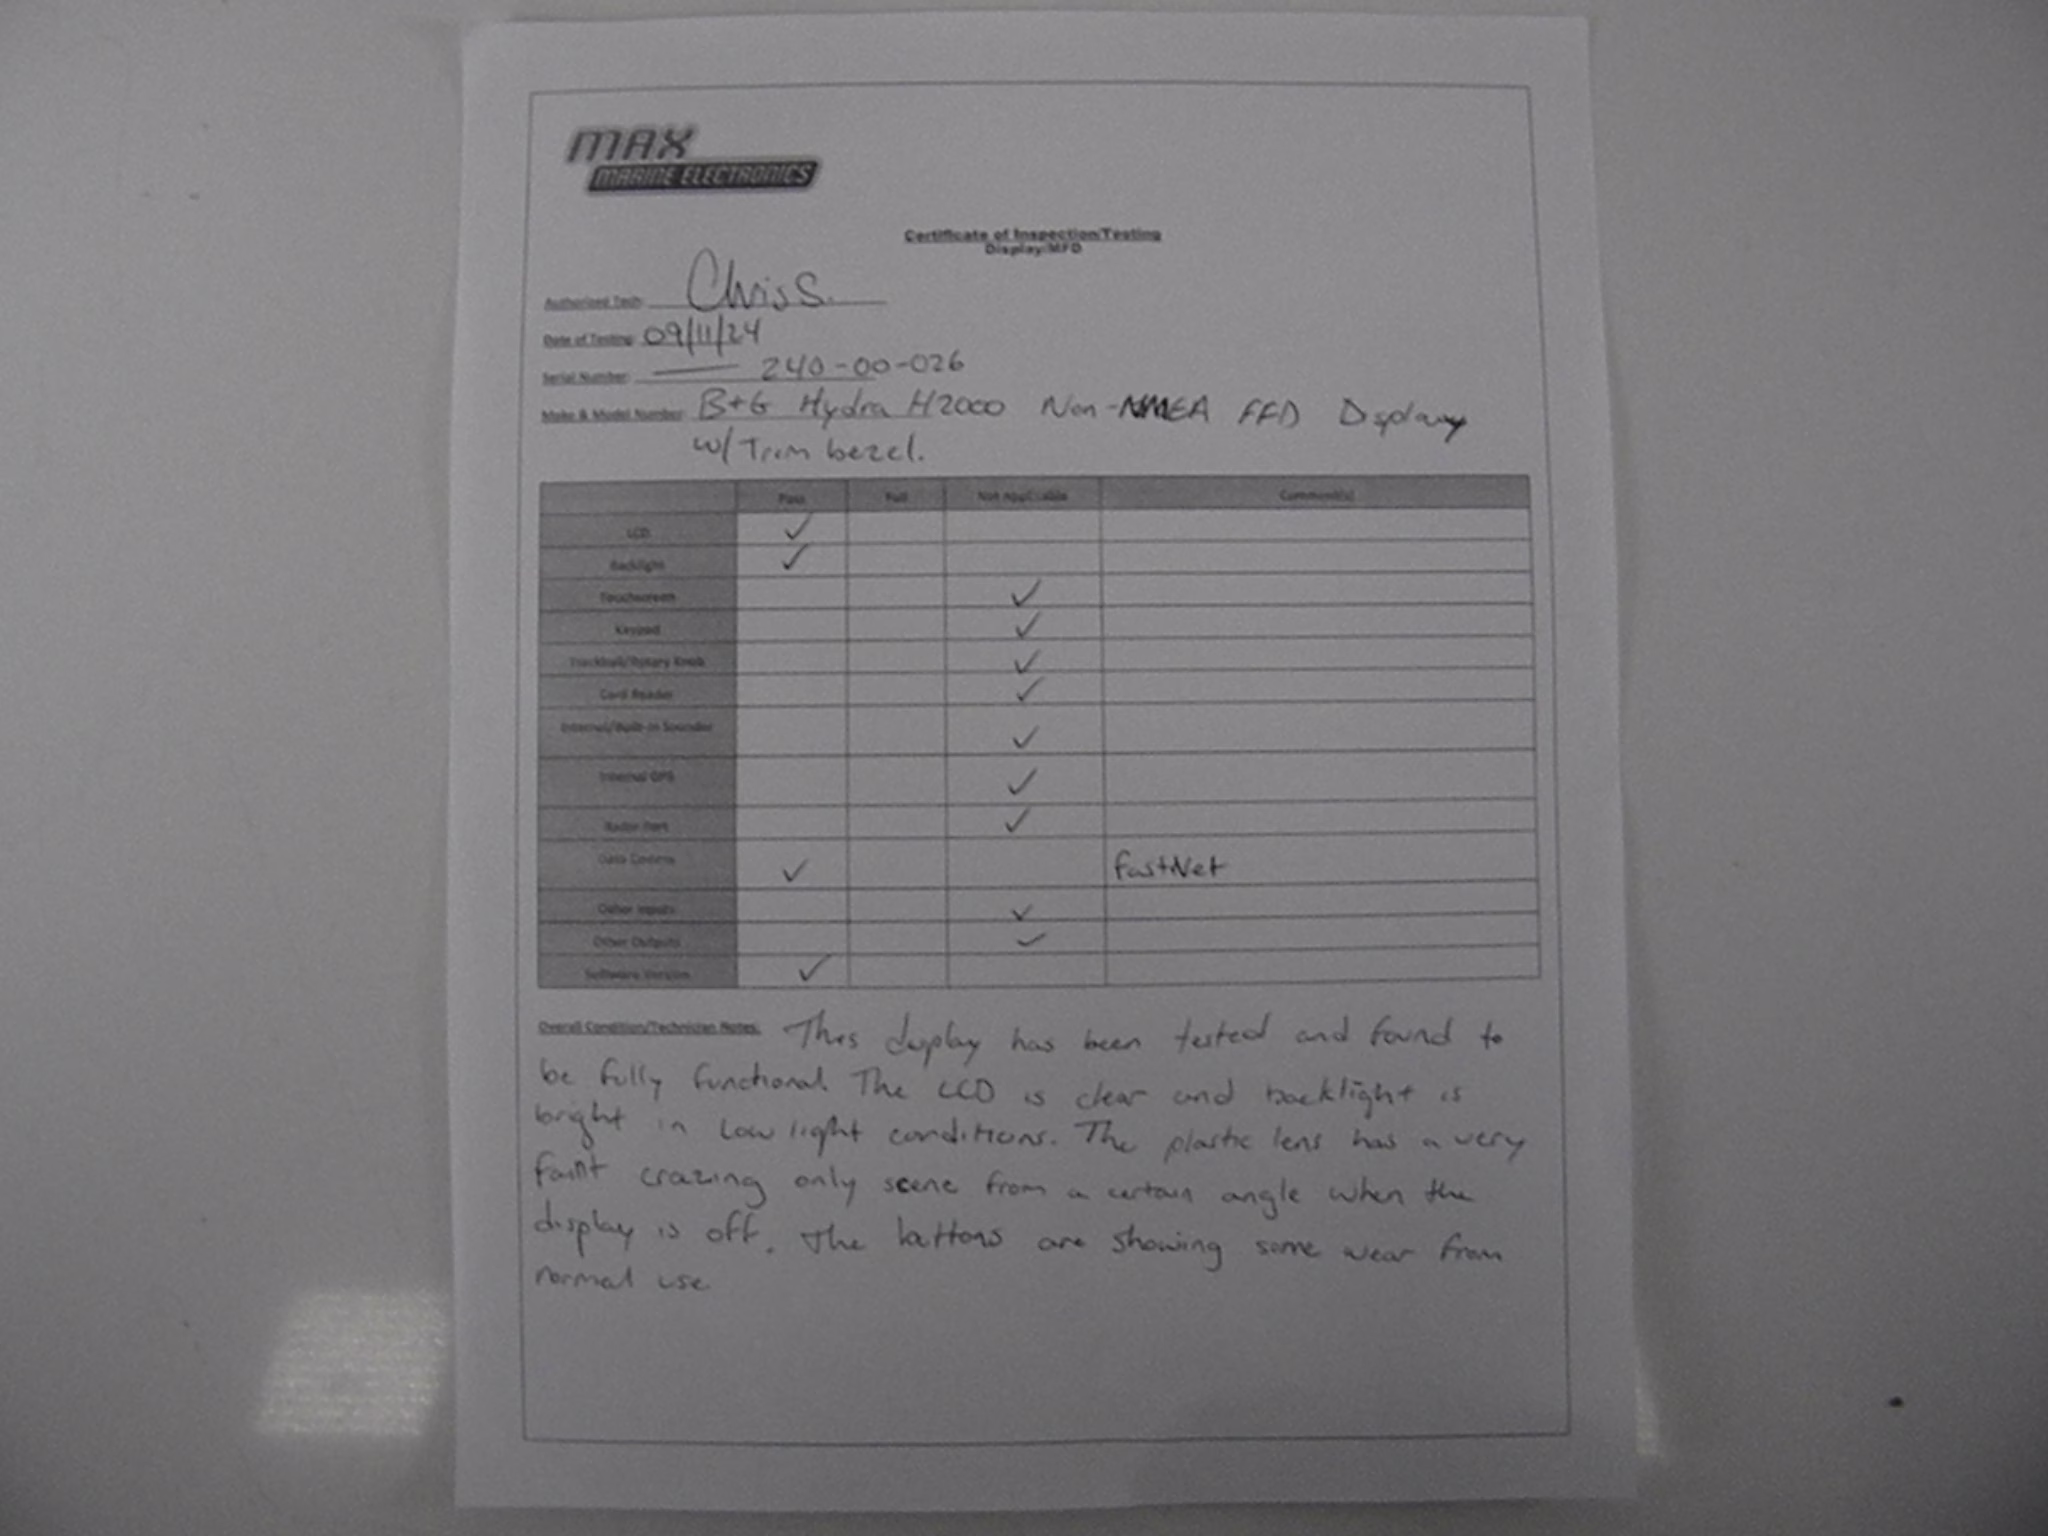 MAX
MARINE ELECTRONICS
Certificate of Inspection/Testing
Display/MFD
Authorized Tech: Chris S.
Date of Testing: 09/11/24
Serial Number: — 240-00-026
Make & Model Number: B+G Hydra H2000 Non-NMEA FFD Display
w/ Trim bezel.
Pass Fail Not Applicable Comment(s)
LCD ✓
Backlight ✓
Touchscreen ✓
Keypad ✓
Trackball/Rotary Knob ✓
Card Reader ✓
Internal/Built-in Sounder ✓
Internal GPS ✓
Radar Port ✓
Data Comms ✓ FastNet
Other Inputs ✓
Other Outputs ✓
Software Version ✓
Overall Condition/Technician Notes: This display has been tested and found to
be fully functional. The LCD is clear and backlight is
bright in low light conditions. The plastic lens has a very
faint crazing only scene from a certain angle when the
display is off. The buttons are showing some wear from
normal use